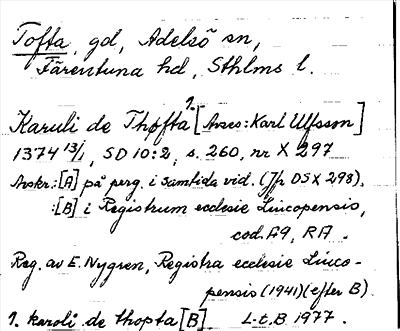 Tofta, gd, Adelsö sn,
Färentuna hd, Sthlms l.
Karuli de Thofta 1. [Avses: Karl Ulfsson]
1374 13/1, SD 10:2, s. 260, nr X 297
Avskr.: [A] på perg. i samtida vid. (Jfr DS X 298).
: [B] i Registrum ecclesie Lincopensis,
cod. A9, RA.
Reg. av E. Nygren, Registra ecclesie Linco-
pensis (1941) (efter B)
1. karoli de thopta [B] L.t.B 1977.